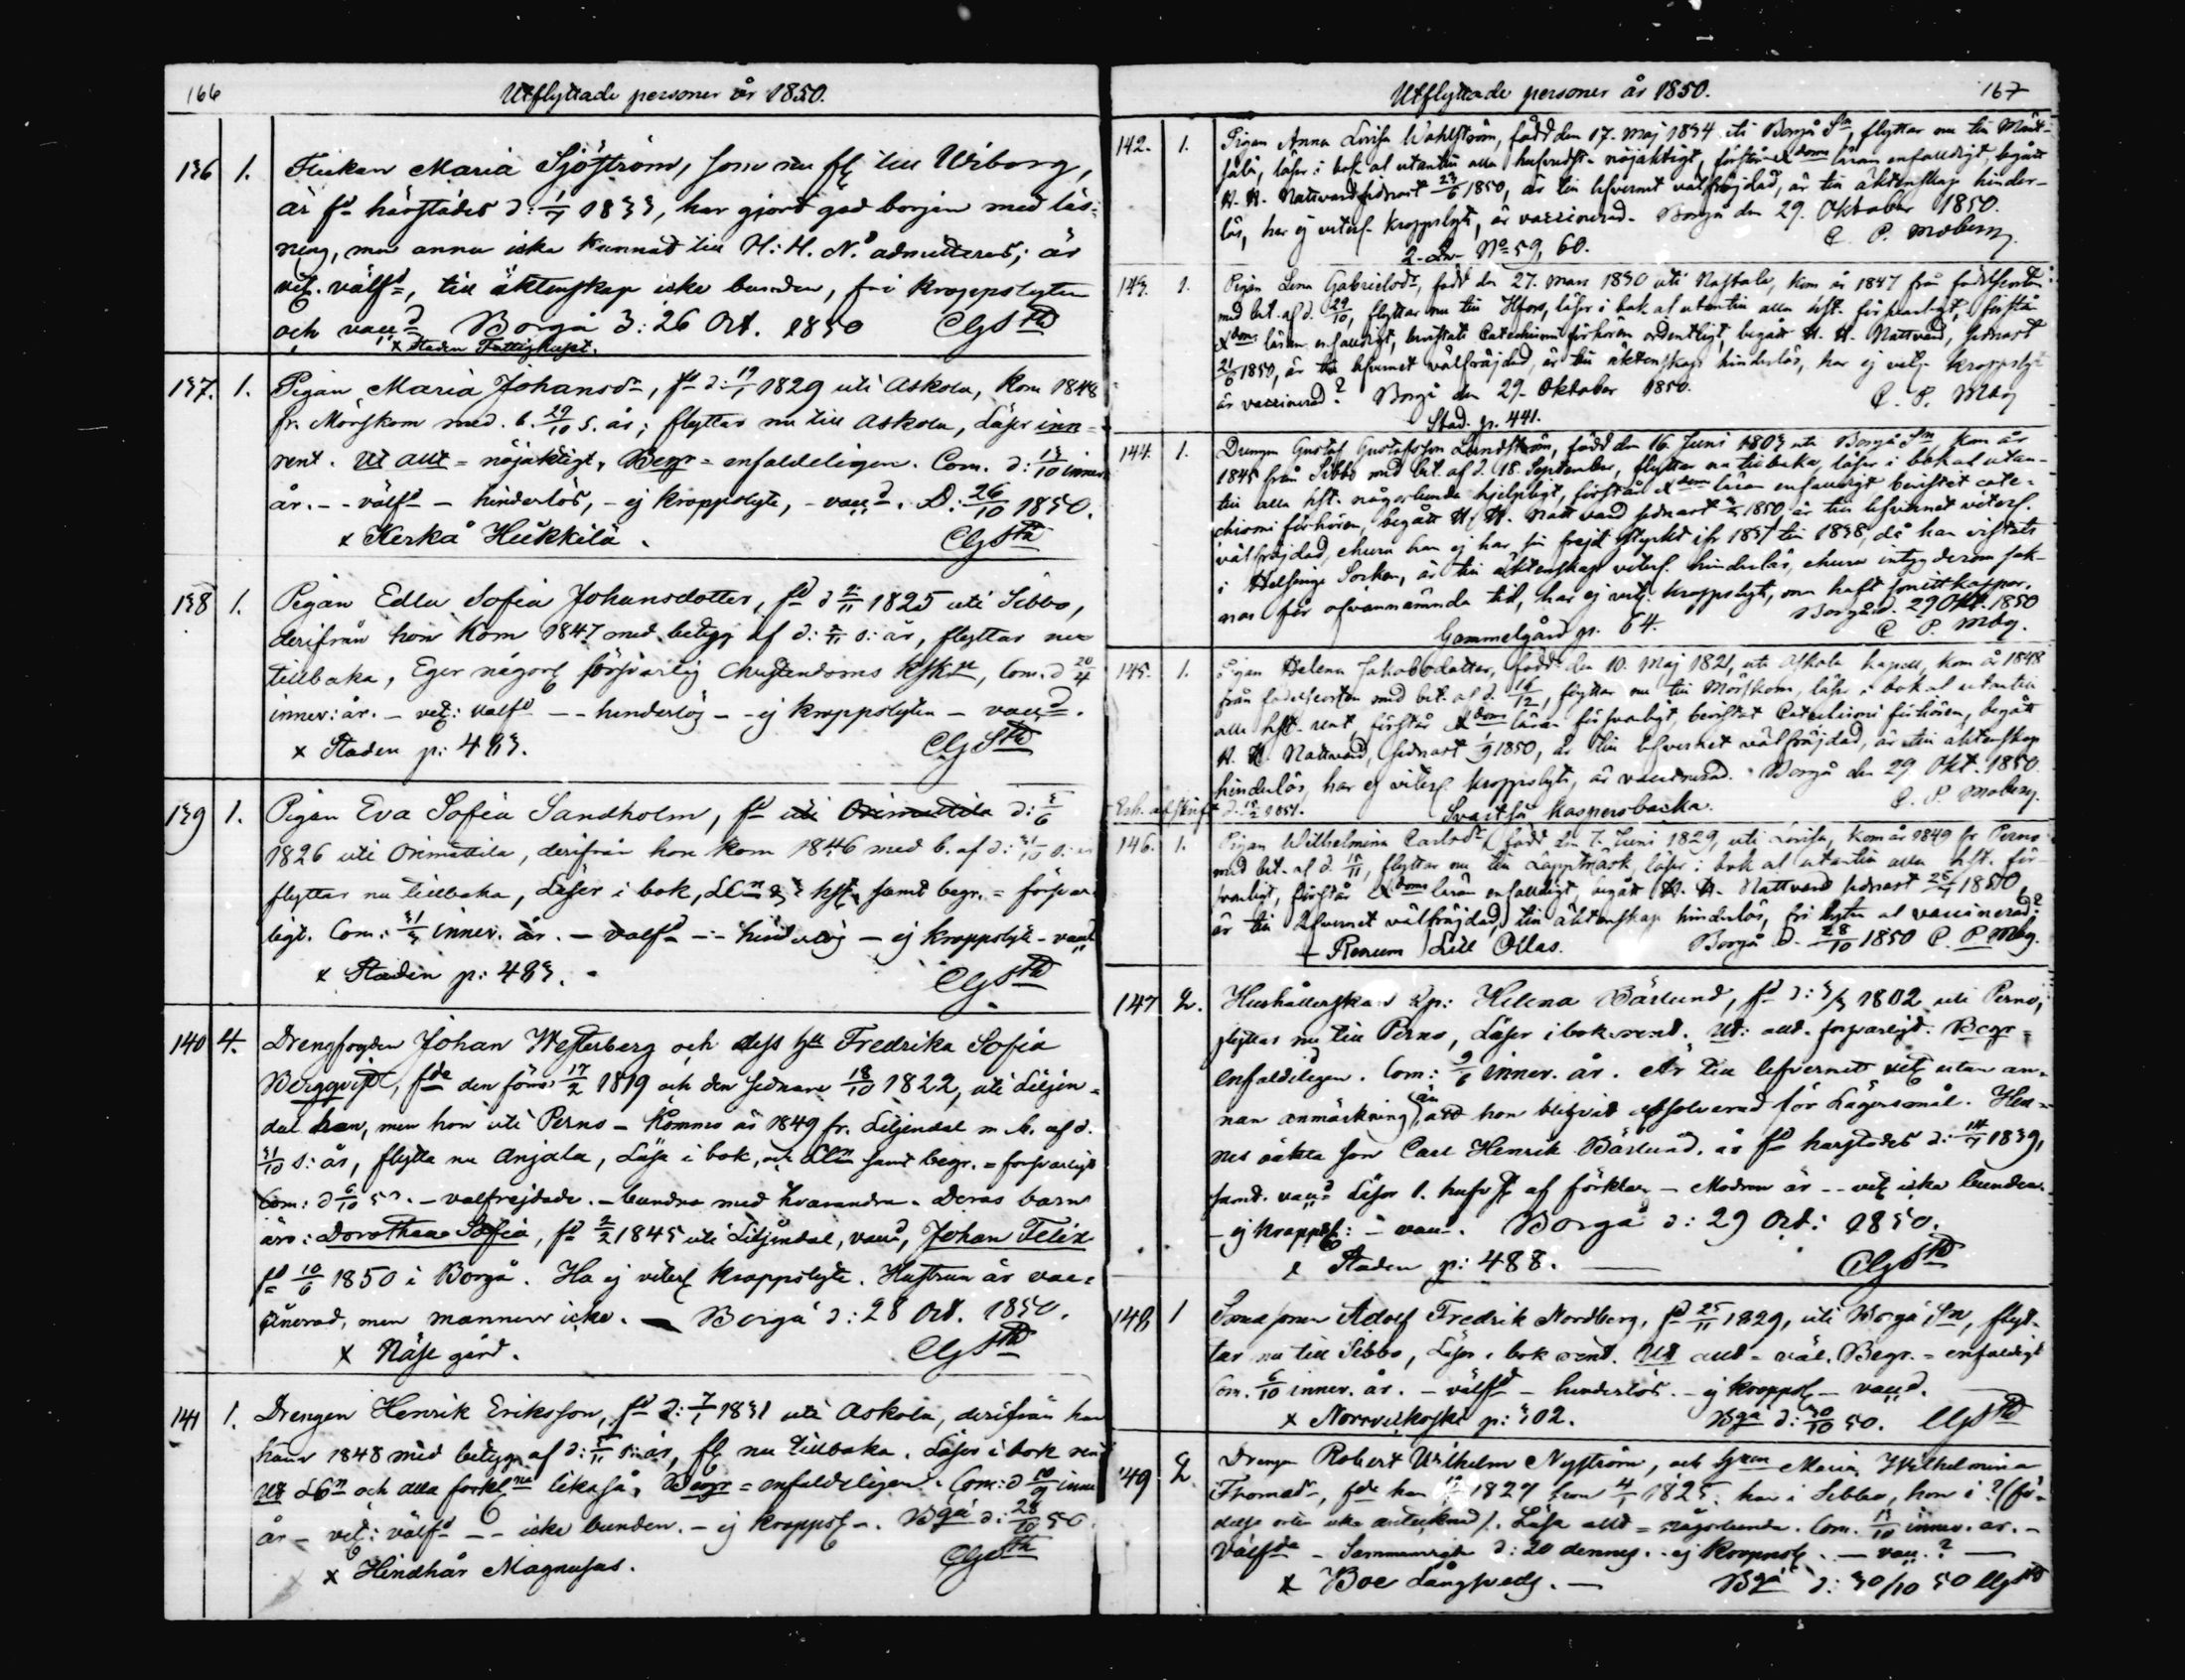 166
Utflyttade personer år 1850.
136 1. Flickan Maria Sjöström, som nu fl till Wiborg,
är fd härstädes d: 1/7 1833, har gjort god början med läs-
ning, men annu icke kunnat till H: H. N. admitteras; är
vit. välfd, till äktenskap icke bunden, fri kroppslyten
och vacc.d Borgå d: 26 Oct. 1850 CGStd
x Staden Fattighuset.
137. 1. Pigan Maria Johansdr, fd d: 19/1 1829 uti Askola, kom 1848
fr. Mörskom med. b. 29/10 s. år; flyttar nu till Askola, Läser inn-
rent. Ut allt = nöjaktigt, Begr = enfaldeligen. Com. d: 13/10 inner.
år. - - välfd - hinderlös, - ej kroppslyte, - vacc.d. D: 26/10 1850.
x Kerkå Hukkilä. CGStd
138 1. Pigan Edla Sofia Johansdotter, fd d 2/11 1825 uti Sibbo,
derifrån hon kom 1847 med betyg af d: s: år, flyttar nu
tillbaka, Eger någorl försvarlig Christendoms , Com. d 20/4
inner: år. - vet: välfd - - hinderlös - - ej kroppslyten - vacc.d.
x Staden p: 483. CGStd
139 1. Pigan Eva Sofia Sandholm, fd uti Orimattila d: 3/6
1826 uti Orimattila, derifrån hon kom 1846 med b. af d: 31/10 s: år
flyttar nu tillbaka, Läser i bok, samt begr. = försvar
ligt. Com: 31/3 inner. år. - välfd - - hinderlös - ej kroppslyte - vacc
x Staden p: 483. CGStd
140 4. Drengfogden Johan Westerberg och dess hu Fredrika Sofia
Bergqvist, fde den förra 17/2 1819 och den sednare 18/10 1822, uti Liljen-
dal han, men hon uti Perno - Kommo år 1849 fr. Liljendal m b. af d.
31/10 s: år, flytta nu Anjala, Läsa i bok, och samt begr. = försvarligt
Com: d 6/10 50. - välfrejdade. - bundna med hvarandra. Deras barn
äro: Dorothea Sofia, fd 2/2 1845 uti Liljendal, vacd, Johan Felix
fd 10/6 1850 i Borgå. Ha ej veterl kroppslyte. Hustrun är vac-
cinerad, men mannen icke. - Borgå d: 28 Oct. 1850.
x Näse gård. CGStd
141 1. Drengen Henrik Eriksson, fd d: 7/1 1831 uti Askola, derifrån han
kom 1848 med betyg af d: s: år, fl nu tillbaka. Läser i bok rent
Ut och alla förkl likaså, Begr = enfaldeligen. Com: d inner
år - vet: välfd - - icke bunden. - ej kroppsl -. Bgå d: 28/10 50.
x Hindhår Magnusas. CGStd
Utflyttade personer år 1850.
167
142. 1. Pigan Anna Lovisa Wahlström, född den 17. Maj 1834 uti Borgå Sn, flyttar nu till Mänt-
sälä, läser i bok al utantill alla hufvudst. nöjaktigt, förstår Xdoms läran enfalldigt, begått
H. H. Nattvard sednast 23/6 1850, är till lefvernet välfräjdad, är till äktenskap hinder-
lös, har ej veterl. kroppslyte, är vaccinerad. Borgå den 29. Oktober 1850.
No 59, 60. C. P. Moberg.
143. 1. Pigan Lena Gabrielsdr, född den 27. Mars 1830 uti Nastola, kom år 1847 från födelseorten
med bet. af d. 29/10, flyttar nu till Hfors, läser i bok al utantill alla hst. försvarligt, förstår
Xdoms läran enfalldigt, bevistat Catechismi förhören ordentligt, begått H. H. Nattvard, sednast
21/6 1850, är till lefvernet välfräjdad, är till äktenskap hinderlös, har ej vetl. kroppslyte
är vaccinerad? Borgå den 29. Oktober 1850.
Stad. p. 441. C. P. Mbg
144. 1. Drengen Gustaf Gustafsson Lindström, född den 16. Juni 1803 uti Borgå Sn, kom år
1845 från Sibbo med bet. af d. 18. September, flyttar nu tillbaka, läser i bok al utan-
till alla hst. någorlunda hjelpligt, förstår Xdoms läran enfalldigt bevistat cate-
chismi förhören, begått H. H. Nattvard sednast 1850, är till lefvernet veterl.
välfräjdad, ehuru han ej har sin frejd styrkt ifr 1837 till 1838, då han vistats
i Helsinge Socken, är till äktenskap veterl. hinderlös, ehuru intyg derom sak-
nas för ofvannämnda tid, har ej vetl. kroppslyte, om haft smittkoppor.
Gammelgård p. 64. Borgå d. 29 Okt. 1850
C P. Mbg.
145. 1. Pigan Helena Jakobsdotter, född den 10. Maj 1821, uti Askola kapell, kom år 1848
från födelseorten med bet. af d. 16/12, flyttar nu till Mörskom, läser i bok al utantill
alla hst. rent, förstår Xdoms läran försvarligt, bevistat Catechismi förhören, begått
H. H. Nattvard, sednast 1/9 1850, är till lefvernet välfräjdad, är till äktenskap
hinderlös, har ej veterl. kroppslyte, är vaccinerad. Borgå den 29 Okt. 1850.
Erh. afskrift d. 1851. Svartså Kaspersbacka. C. P. Moberg.
146. 1. Pigan Wilhelmina Carlsdr född den 7. Juni 1829, uti Lovisa, kom år 1849 fr. Perno
med bet. af d. 18/11, flyttar nu till Lappträsk, läser i bok al utantill alla hst. för-
svarligt, förstår Xdoms läran enfalldigt, begått H. H. Nattvard sednast 1850
är till lefvernet välfräjdad, till äktenskap hinderlös, fri lyten al vaccinerad?
Renum Lill Ollas. Borgå d. 28/10 1850 C. P. Mbg.
147 2. Hushållerskan Helena Bärlund, fd d: 3/3 1802 uti Perno,
flyttar nu till Perno, Läser i bok rent. Ut: allt. försvarligt. Begr =
enfaldeligen. Com: 9/6 inner. år. Är till lefvernett vet utan an-
nan anmärkning än att hon blifvit absolverad för Lägersmål. Hen-
nes oäkta son Carl Henrik Bärlund, är fd härstädes d: 14/7 1839,
samt vacd Läser 1. hufvst af förklar - Modren är - - vet icke bunden.
- ej kroppsl: - vacc. Borgå d: 29 Oct: 1850.
x Staden p: 488. CGStd
148 1 Adolf Fredrik Nordberg, fd 25/11 1829, uti Borgå Sn, flyt-
tar nu till Sibbo, Läser i bok rent. Ut allt = väl. Begr. = enfaldigt
Com. 6/10 inner. år. - välfd - hinderlös. - ej kroppsl - vacc.d.
x Norrveckoski p: 302. Bgå d: 30/10 50. CGStd
149 2 Drengen Robert Wilhelm Nyström, och hun Maria Wilhelmina
Thomasdr, fde han 1827 hon 4/1 1825: han i Sibbo, hon i ? (fö-
delse orten icke antecknad). Läsa allt = någorlunda. Com. 13/10 inner. år. -
Välfde - Sammanvigde d: 20 dennes. - ej kroppsl. - vacc.? -
x Boe Långheds. - Bgå d: 30/10 50 CGStd